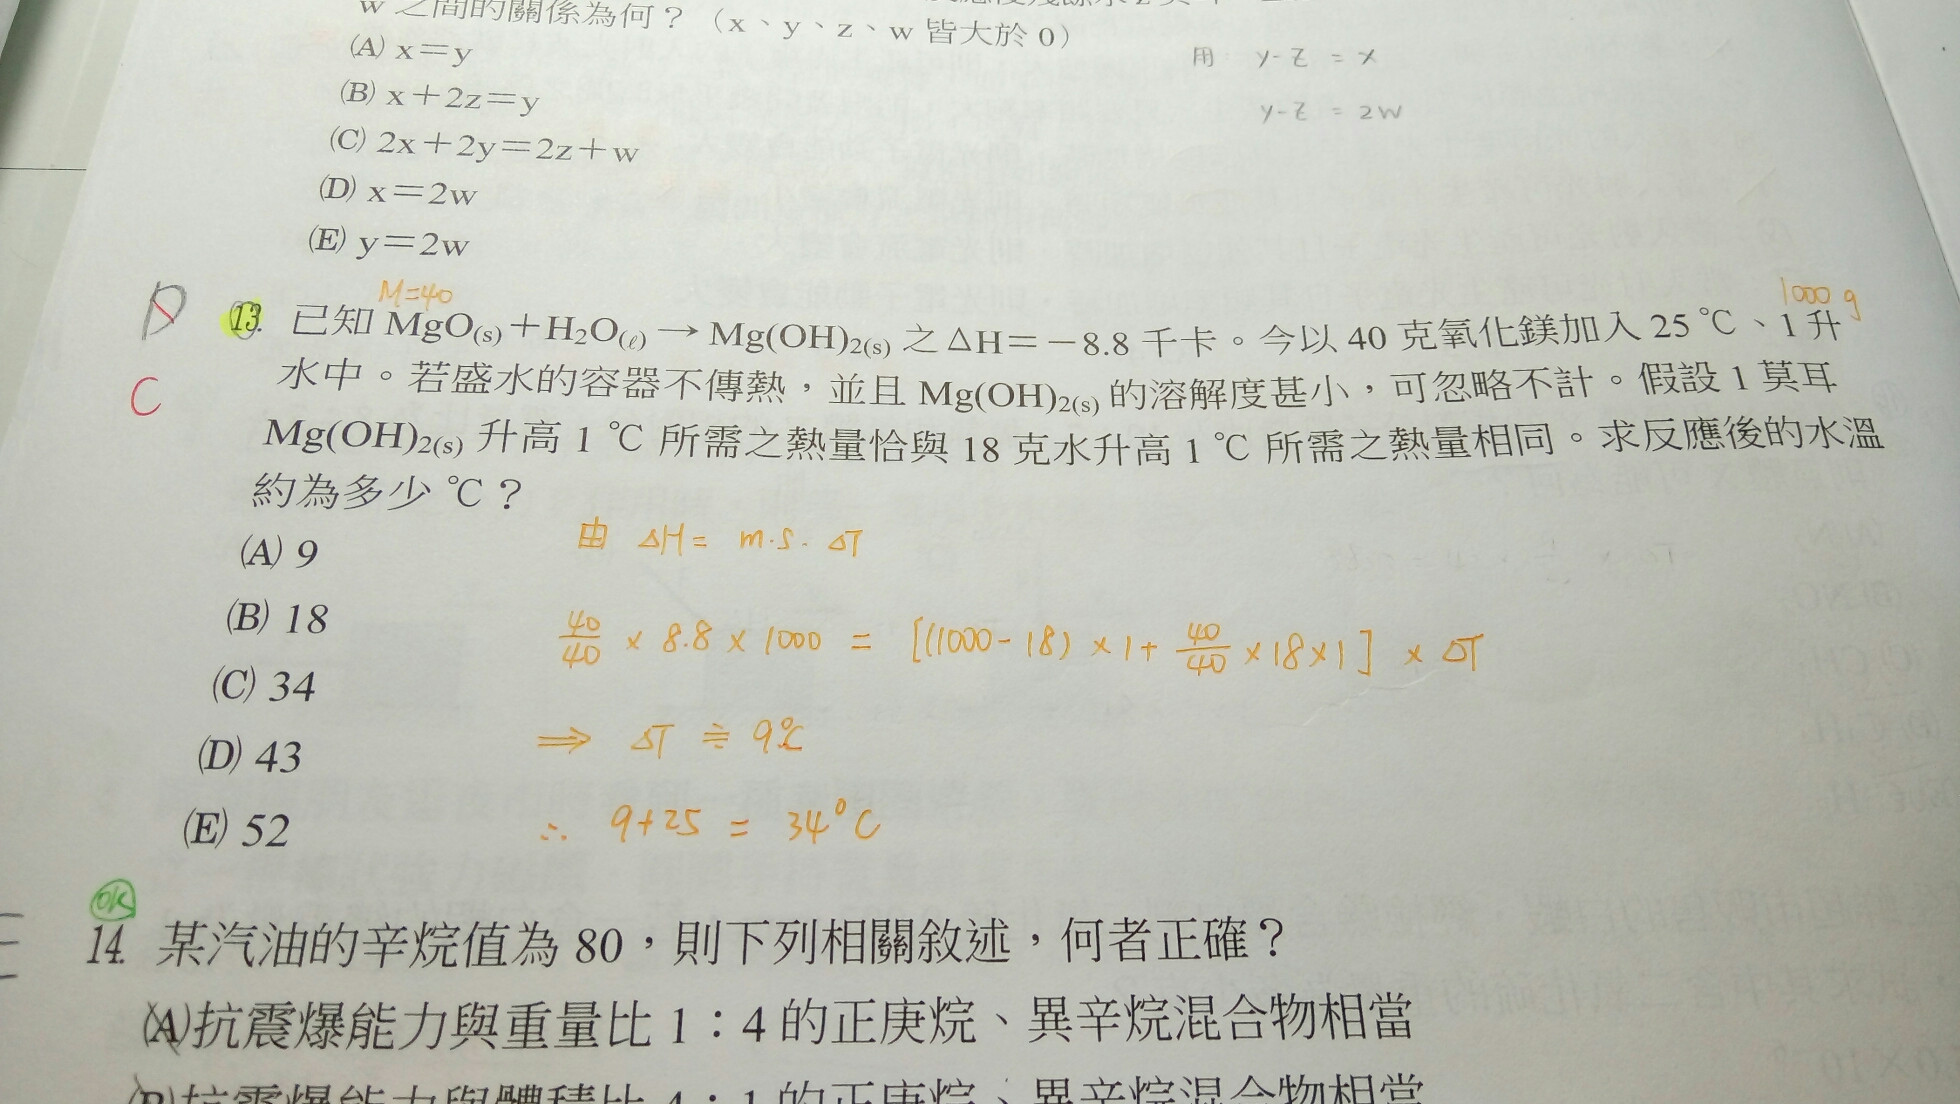 w 之間的關係為何？（x、y、z、w 皆大於 0）
(A) x＝y
用 y-z = x
(B) x＋2z＝y
y-z = 2w
(C) 2x＋2y＝2z＋w
(D) x＝2w
(E) y＝2w
M=40
1000 g
D
13. 已知 MgO(s)＋H2O(ℓ) → Mg(OH)2(s) 之 △H＝－8.8 千卡。今以 40 克氧化鎂加入 25 ℃、1 升
C
水中。若盛水的容器不傳熱，並且 Mg(OH)2(s) 的溶解度甚小，可忽略不計。假設 1 莫耳
Mg(OH)2(s) 升高 1 ℃ 所需之熱量恰與 18 克水升高 1 ℃ 所需之熱量相同。求反應後的水溫
約為多少 ℃？
由 △H = m.s. △T
(A) 9
(B) 18
40/40 × 8.8 × 1000 = [(1000-18) × 1 + 40/40 × 18 × 1] × △T
(C) 34
(D) 43
⇒ △T ≒ 9℃
(E) 52
∴ 9+25 = 34°C
ok
14. 某汽油的辛烷值為 80，則下列相關敘述，何者正確？
(A)抗震爆能力與重量比 1：4 的正庚烷、異辛烷混合物相當
(B)抗震爆能力與體積比 4：1 的正庚烷、異辛烷混合物相當